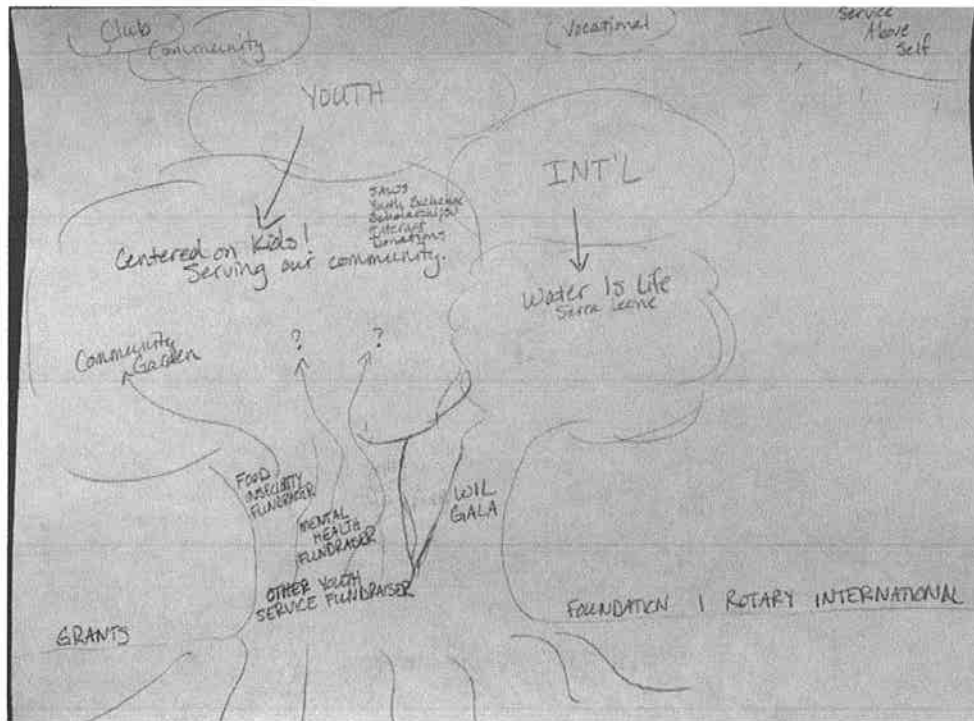 Club
Community
Vocational
Service
Above
Self
YOUTH
INT'L
SAWS
Youth Exchange
Scholarships
Interact
Donations
Centered on Kids!
Serving our community.
Water Is Life
Sierra Leone
Community
Garden
?
?
FOOD
INSECURITY
FUNDRAISER
MENTAL
HEALTH
FUNDRAISER
OTHER YOUTH
SERVICE FUNDRAISER
WIL
GALA
GRANTS
FOUNDATION | ROTARY INTERNATIONAL